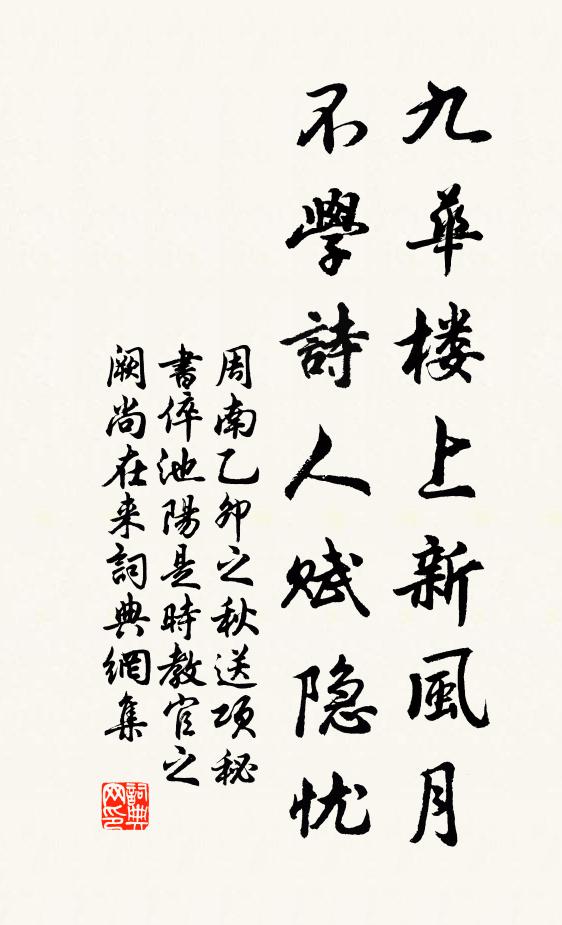 九華楼上新風月
不學詩人赋隐忧
周南乙卯之秋送项秘
書倅池陽是時教官之
阙尚在来詞典網集
詞典
网印